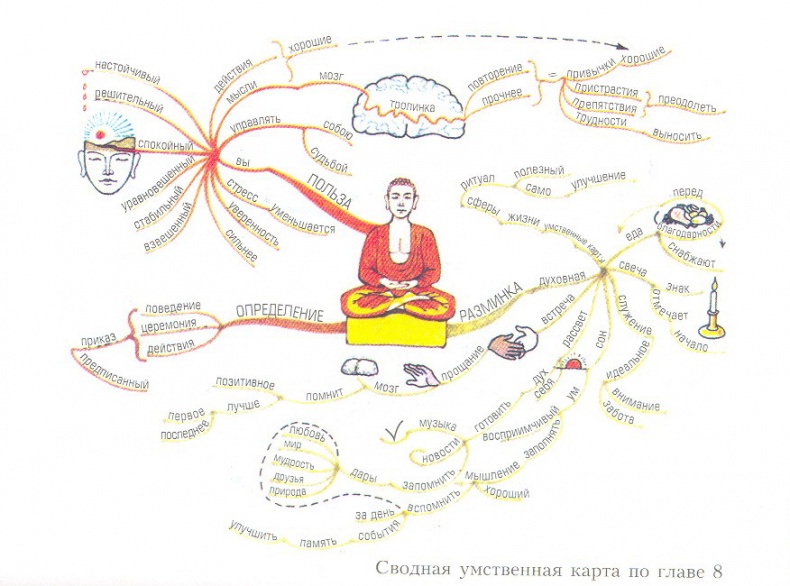 настойчивый
решительный
спокойный
уравновешенный
стабильный
взвешенный
действия
хорошие
мысли
мозг
тропинка
повторение
прочнее
=
привычки
хорошие
пристрастия
препятствия
преодолеть
трудности
выносить
управлять
собою
судьбой
вы
стресс
уменьшается
уверенность
сильнее
ПОЛЬЗА
ОПРЕДЕЛЕНИЕ
поведение
церемония
действия
приказ
предписанный
РАЗМИНКА
духовная
ритуал
полезный
само
улучшение
сферы
жизни
умственные карты
еда
перед
благодарности
снабжают
свеча
знак
отмечает
начало
служение
идеальное
внимание
забота
встреча
прощание
мозг
помнит
позитивное
лучше
первое
последнее
рассвет
дух
себя
готовить
музыка
новости
сон
ум
заполнять
восприимчивый
мышление
хороший
запомнить
дары
любовь
мир
мудрость
друзья
природа
вспомнить
за день
события
память
улучшить
Сводная умственная карта по главе 8